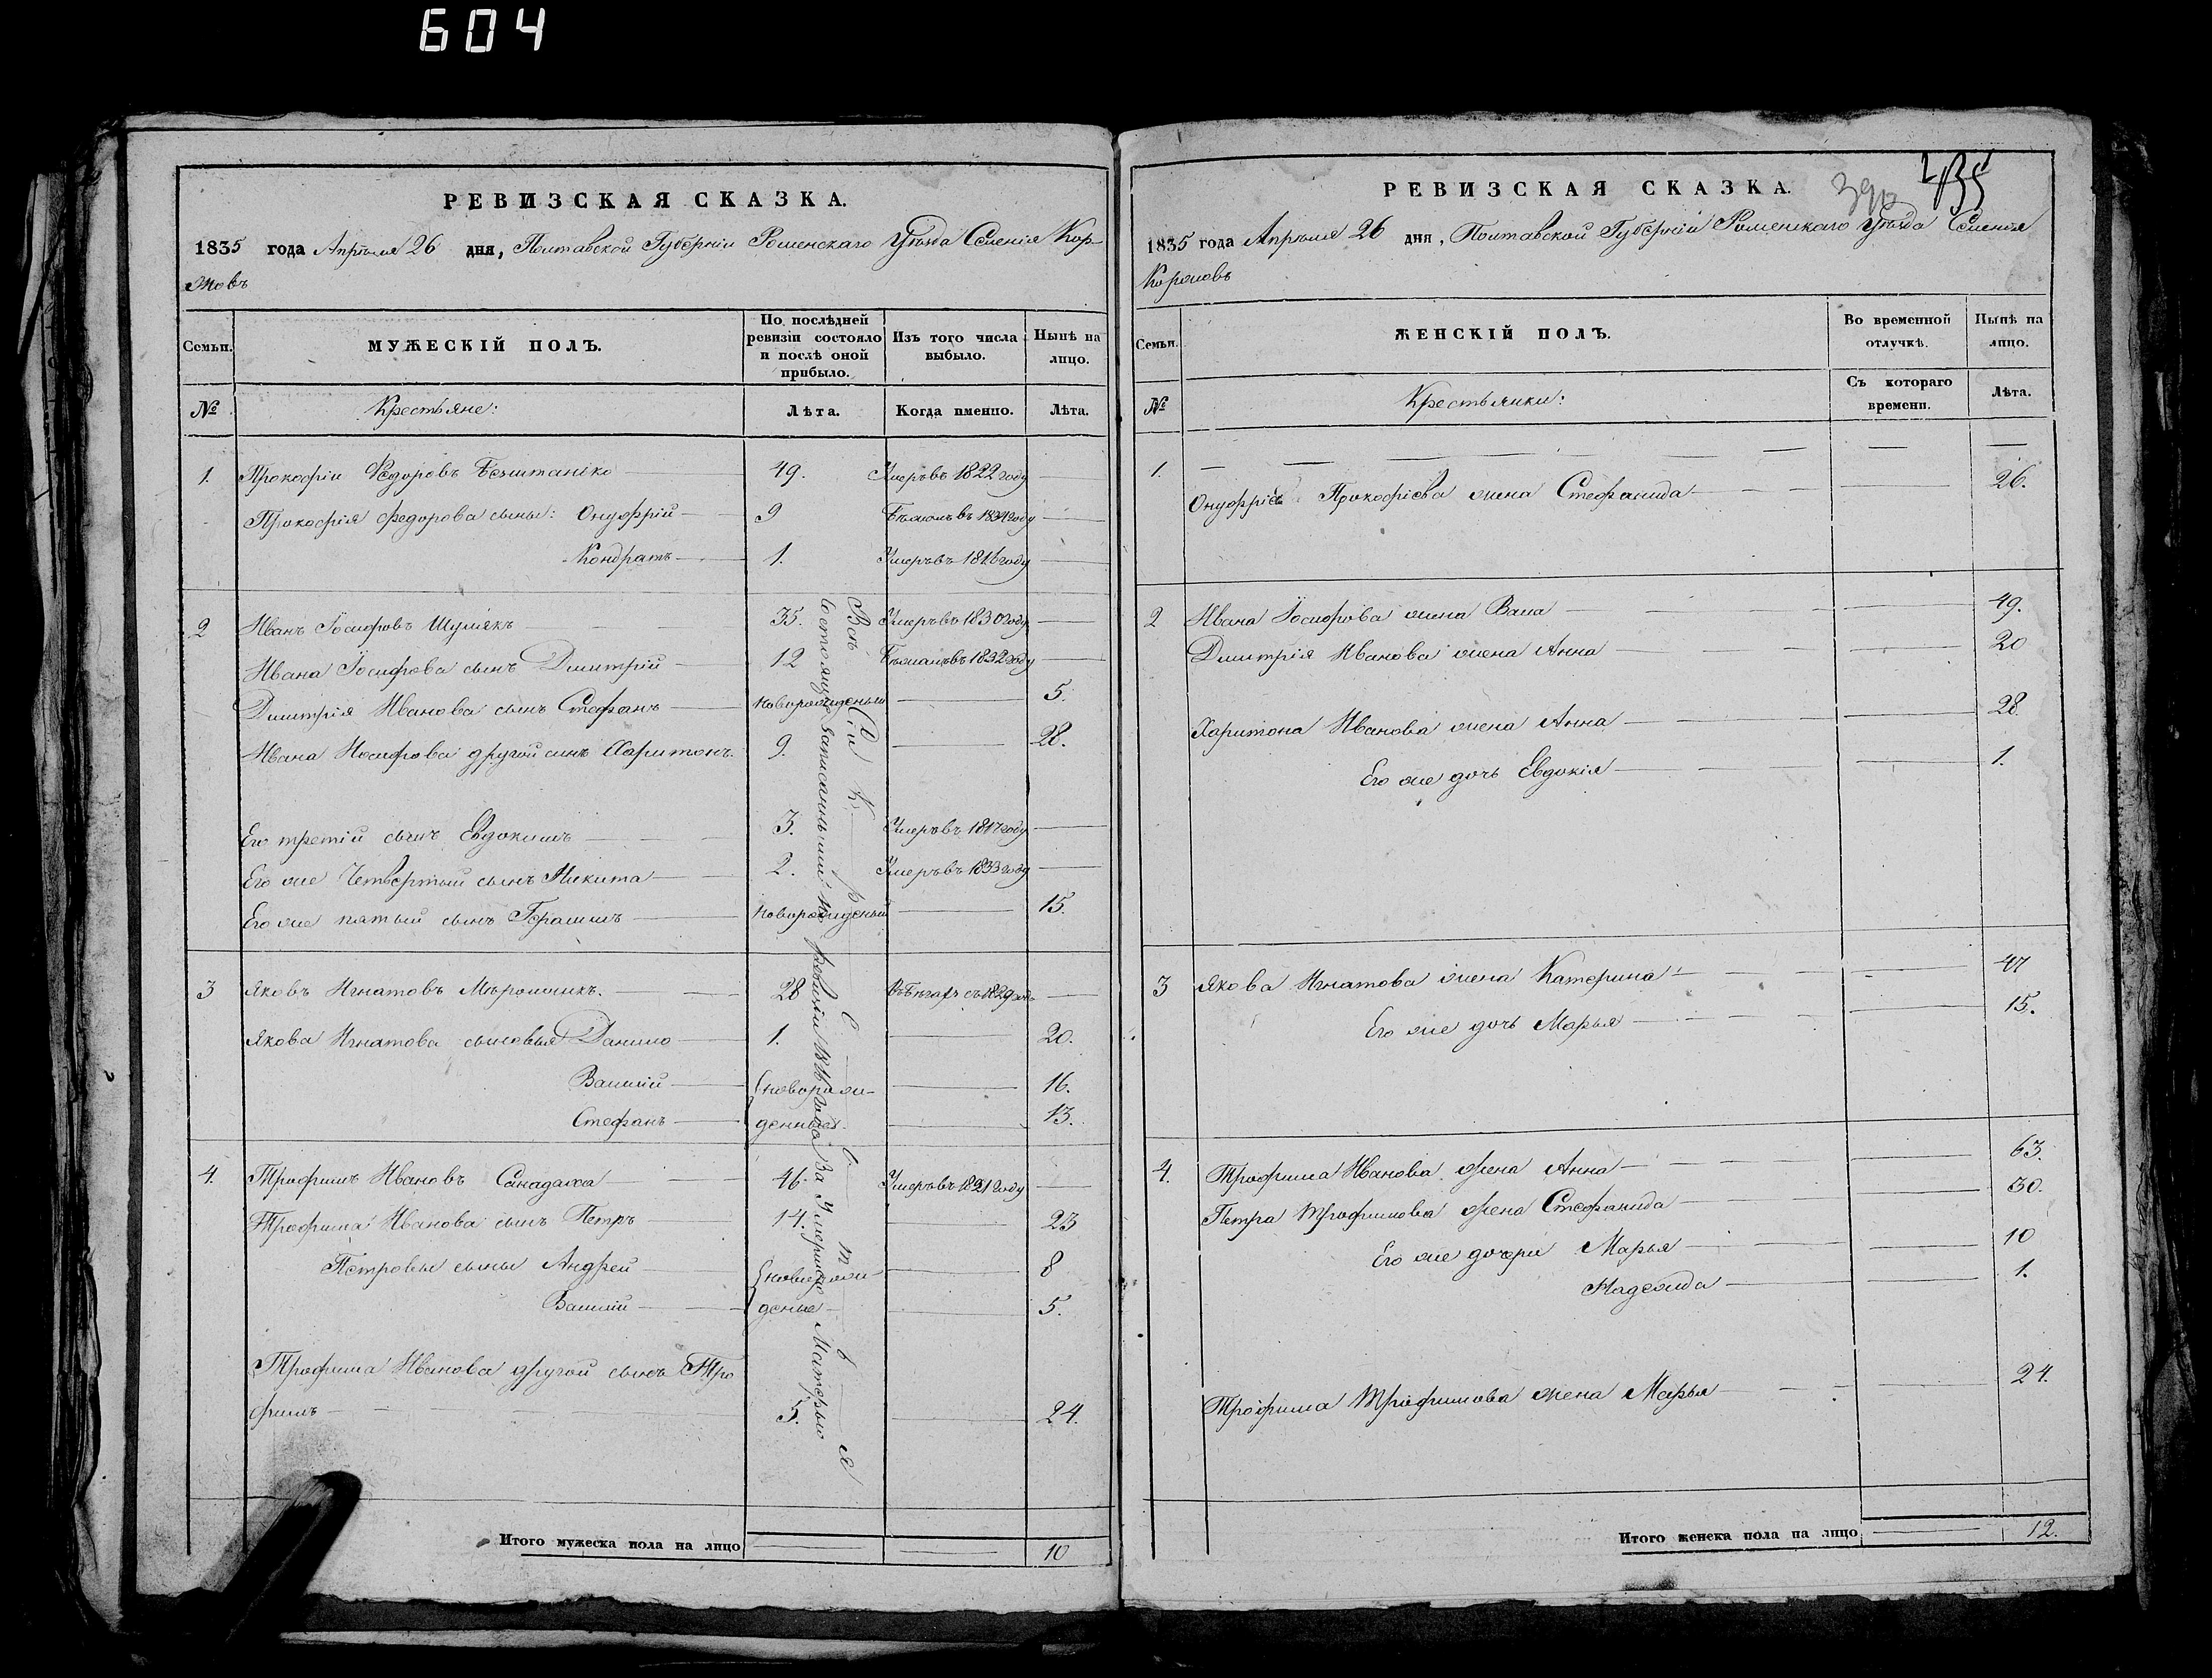 604
РЕВИЗСКАЯ СКАЗКА.
1835 года Апрѣля 26 дня, Полтавской Губерніи Роменскаго Уѣзда Селенія Кор-
жовъ
Семьи.
МУЖЕСКІЙ ПОЛЪ.
По послѣдней ревизіи состояло и послѣ оной прибыло.
Изъ того числа выбыло.
Нынѣ на лицо.
№
Крестьяне:
Лѣта.
Когда именно.
Лѣта.
1. Прокофій Федоровъ 49. Умеръ въ 1822 году
Прокофія Федорова сыны: Онуфрій 9 Бѣжалъ въ 1834 году
Кондратъ 1. Умеръ въ 1816 году
2 Иванъ Іосифовъ Шуліекъ 35. Умеръ въ 1830 году
Ивана Іосифова сынъ Дмитрій 12 Бѣжалъ въ 1832 году
Дмитрія Иванова сынъ Стефанъ новорожденый 5.
Ивана Иосифова другой сынъ Харитонъ. 9. 28.
Его третій сынъ Евдокимъ 3. Умеръ въ 1817 году
Его же Четвертый сынъ Никита 2. Умеръ въ 1833 году
Его же пятый сынъ Герашимъ новорожденый 15.
3 Яковъ Игнатовъ 28 Въ бѣгахъ съ 1829 года
Якова Игнатова сыновья Данило 1. 20.
Василій новорож- 16.
Стефанъ деныя 13.
4. Трофимъ Ивановъ 46. Умеръ въ 1821 году
Трофима Иванова сынъ Петръ 14. 23
Петровы сыны Андрей новорож- 8
Василій деные 5.
Трофима Иванова другой сынъ Тро
фимъ 5. 24.
Всѣ Сіи Крестьяня
состоящіе записанными по ревизіи 1816 года за умершею Матерью
Итого мужеска пола на лицо 10
435
РЕВИЗСКАЯ СКАЗКА.
1835 года Апрѣля 26 дня, Полтавской Губерніи Роменскаго Уѣзда Селенія
Коржовъ
Семьи.
ЖЕНСКІЙ ПОЛЪ.
Во временной отлучкѣ.
Нынѣ на лицо.
№
Крестьянки:
Съ котораго времени.
Лѣта.
1.
Онуфрія Прокофіева жена Стефанида 26.
2 Ивана Іосифова жена Васа 49.
Дмитрія Иванова жена Анна 20
Харитона Иванова жена Анна 28.
Его же дочь Евдокія 1.
3 Якова Игнатова жена Катерина 47
Его же дочь Марья 15.
4. Трофима Иванова жена Анна 63.
Петра Трофимова жена Стефанида 30.
Его же дочери Марья 10
Надежда 1.
Трофима Трофимова жена Марья 24.
Итого женска пола на лицо 12.